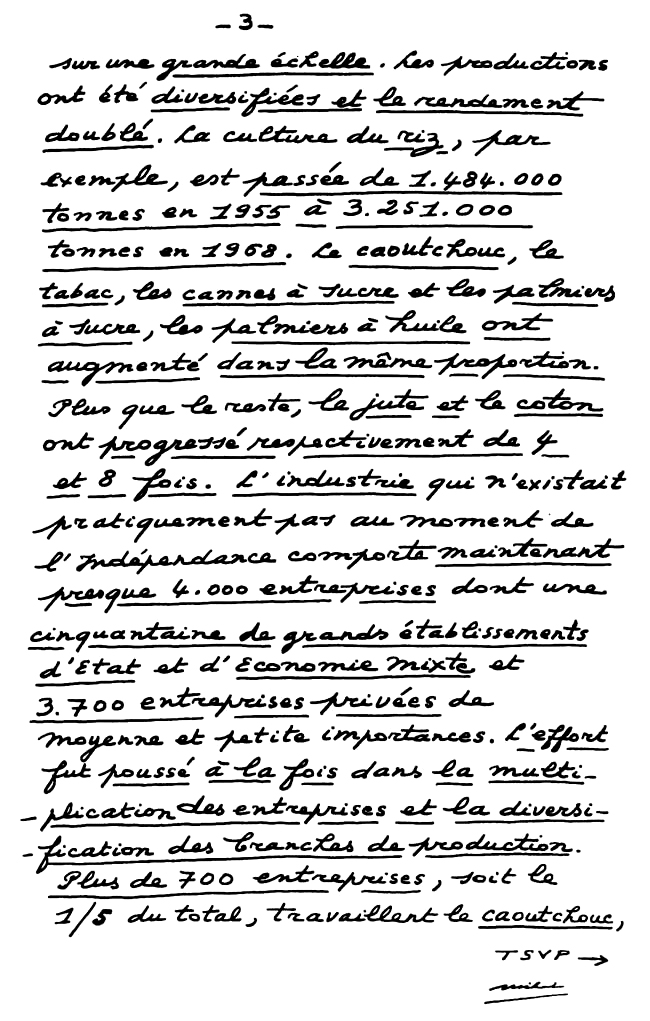 - 3 -
sur une grande échelle. Les productions
ont été diversifiées et le rendement
doublé. La culture du riz, par
exemple, est passée de 1.484.000
tonnes en 1955 à 3.251.000
tonnes en 1968. Le caoutchouc, le
tabac, les cannes à sucre et les palmiers
à sucre, les palmiers à huile ont
augmenté dans la même proportion.
Plus que le reste, le jute et le coton
ont progressé respectivement de 4
et 8 fois. L'industrie qui n'existait
pratiquement pas au moment de
l'Indépendance comporte maintenant
presque 4.000 entreprises dont une
cinquantaine de grands établissements
d'Etat et d'Economie Mixte et
3.700 entreprises privées de
moyenne et petite importances. L'effort
fut poussé à la fois dans la multi-
-plication des entreprises et la diversi-
-fication des branches de production.
Plus de 700 entreprises, soit le
1/5 du total, travaillent le caoutchouc,
TSVP →